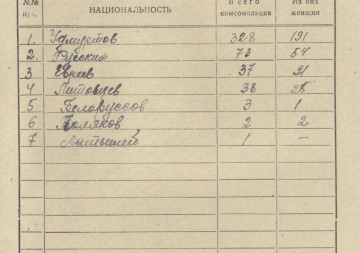 №№ п/п. НАЦИОНАЛЬНОСТЬ Всего комсомольцев Из них женщин
1. Удмуртов 328 191
2. Русских 73 54
3 Евреев 37 21
4 Литовцев 38 25
5 Белоруссов 3 1
6 Поляков 2 2
7 Латышей 1 —